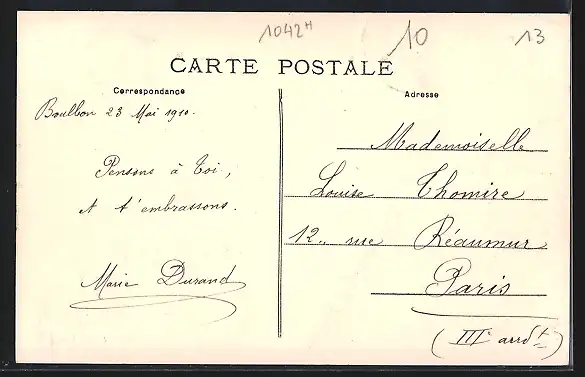 1042H
10
13
CARTE POSTALE
Correspondance
Adresse
Boulbon 23 Mai 1910.
Pensons à Toi,
et t'embrassons.
Marie Durand
Mademoiselle
Louise Thomire
12, rue Réaumur
Paris
(IIIe arrdt)